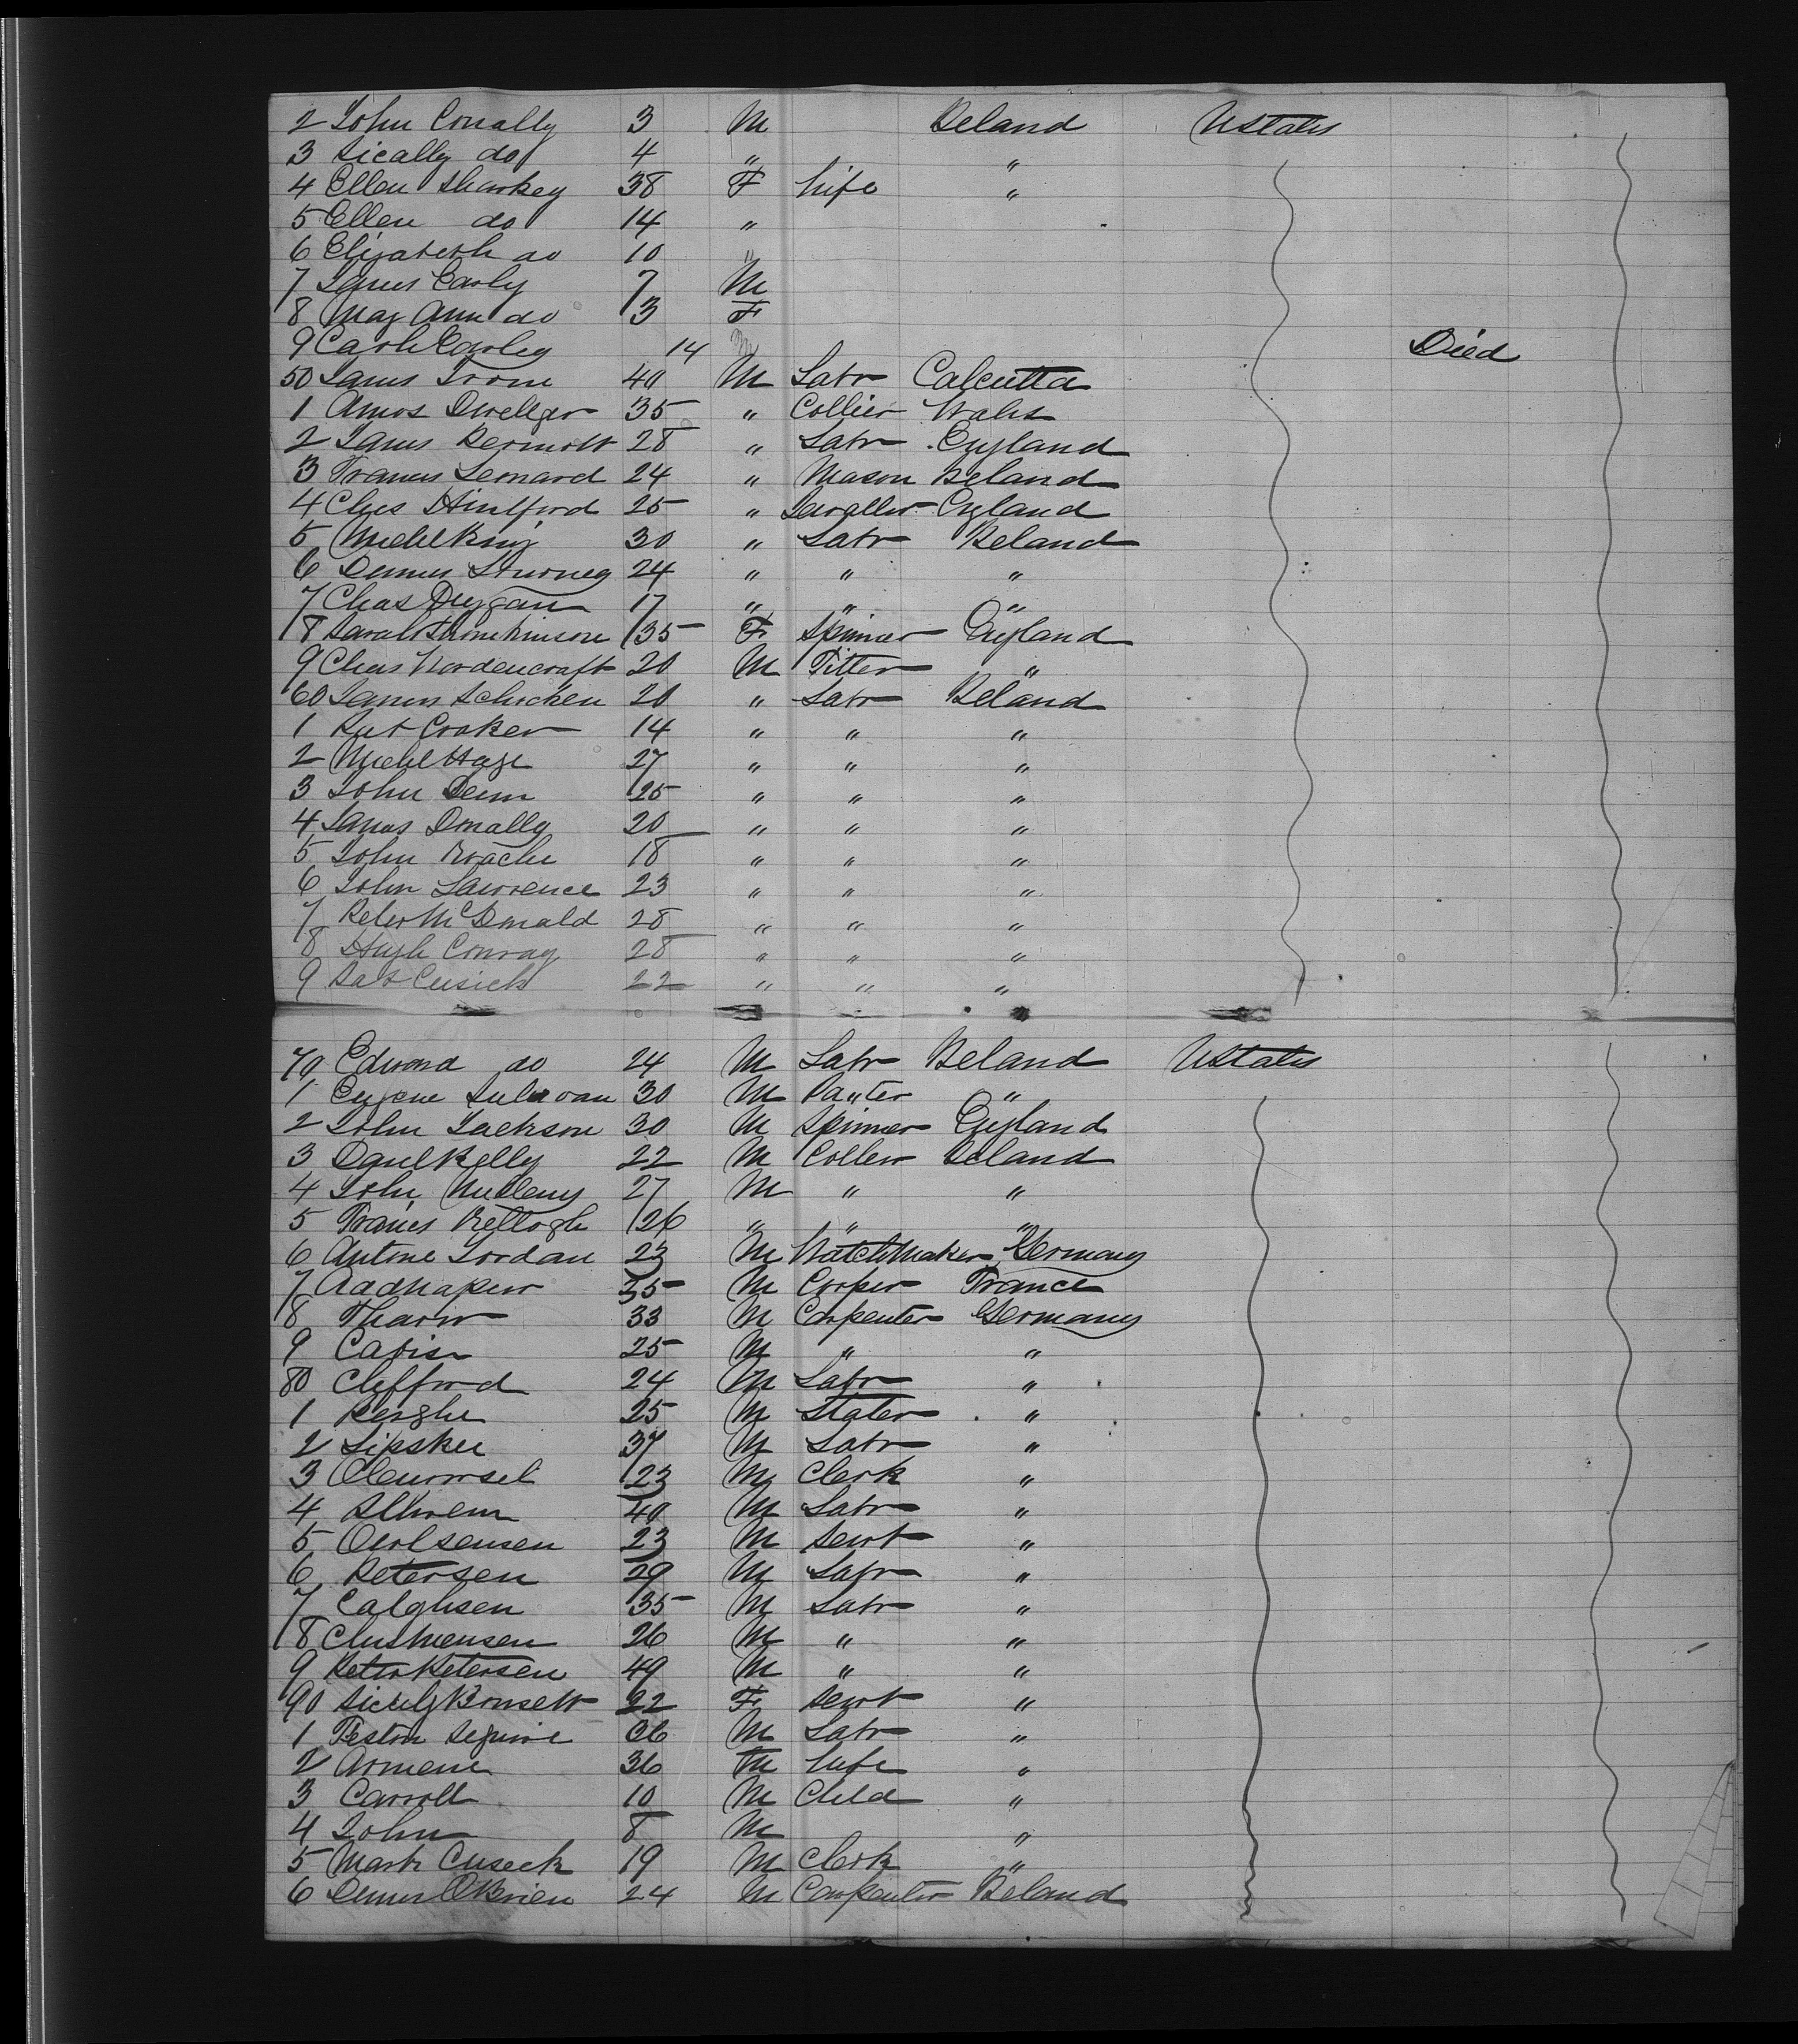 2 John Conally 3 M Ireland U States
3 Sically do 4 " "
4 Ellen Sharkey 38 F Wife "
5 Ellen do 14 "
6 Elizabeth do 10 "
7 James Early 7 M
8 May Ann do 3 F
9 Cath Earley 14 M Died
50 James Trone 40 M Labr Calcutta
1 Amos 35 " Collier Wales
2 James Dermott 28 " Labr England
3 Francis Lernard 24 " Mason Ireland
4 Chas Hinlford 25 " England
5 Michl King 30 " Labr Ireland
6 Dennis 24 " " "
7 Chas Duggan 17 " " "
8 Sarah 35 F Spinner England
9 Chas Wordencraft 20 M Fitter "
60 James 20 " Labr Ireland
1 Pat Croker 14 " " "
2 Michl Haze 27 " " "
3 John Dunn 25 " " "
4 James Donally 20 " " "
5 John Roache 18 " " "
6 John Lawrence 23 " " "
7 Peter McDonald 28 " " "
8 Hugh Conray 28 " " "
9 Pat Cusick 22 " " "
70 Edward do 24 M Labr Ireland U States
1 Eugene Sullivan 30 M "
2 John Jackson 30 M Spinner England
3 Danl Kelly 22 M Collier Ireland
4 John 27 M " "
5 Francis 26 " " "
6 Antone Jordan 23 M Watchmaker Germany
7 35 M Cooper France
8 Tharir 33 M Carpenter Germany
9 25 M " "
80 Clifford 24 M Labr "
1 25 M Slater "
2 Lipsker 37 M Labr "
3 23 M Clerk "
4 40 M Labr "
5 23 M Servt "
6 Petersen 29 M Labr "
7 Calghsen 35 M Labr "
8 26 M " "
9 Peter Petersen 49 M " "
90 22 F Servt "
1 36 M Labr "
2 Armene 36 Wife "
3 Carroll 10 M Child "
4 John 8 M "
5 Mark Cuseck 19 M Clerk "
6 Dennis OBrien 24 M Carpenter Ireland